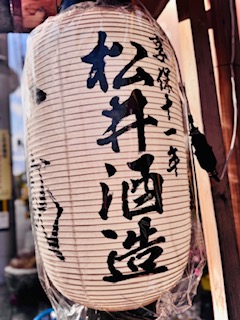 享保十一年
松井酒造